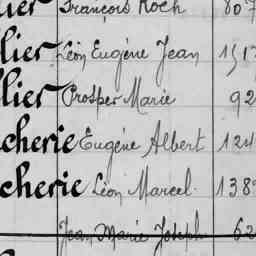 lier François Roch 807
lier Léon Eugène Jean 151
llier Prosper Marie 92
cherie Eugène Albert 124
cherie Léon Marcel. 138
Jean Marie Joseph 62